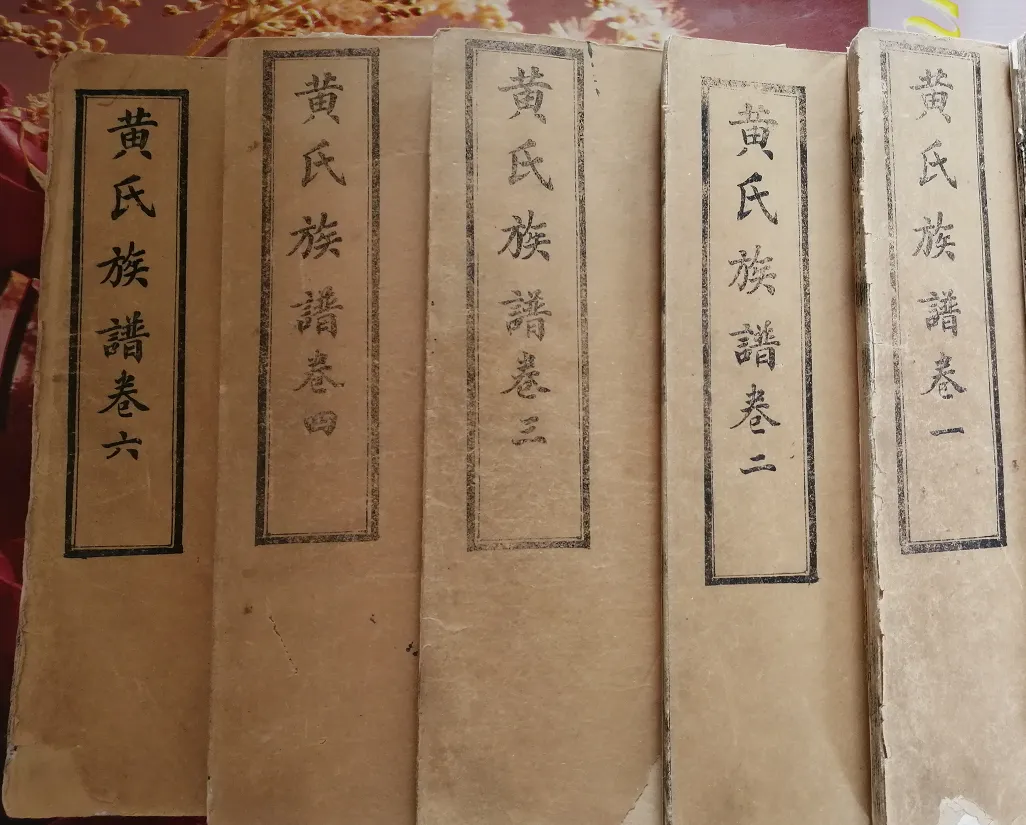 黄氏族譜卷一
黄氏族譜卷二
黄氏族譜卷三
黄氏族譜卷四
黄氏族譜卷六